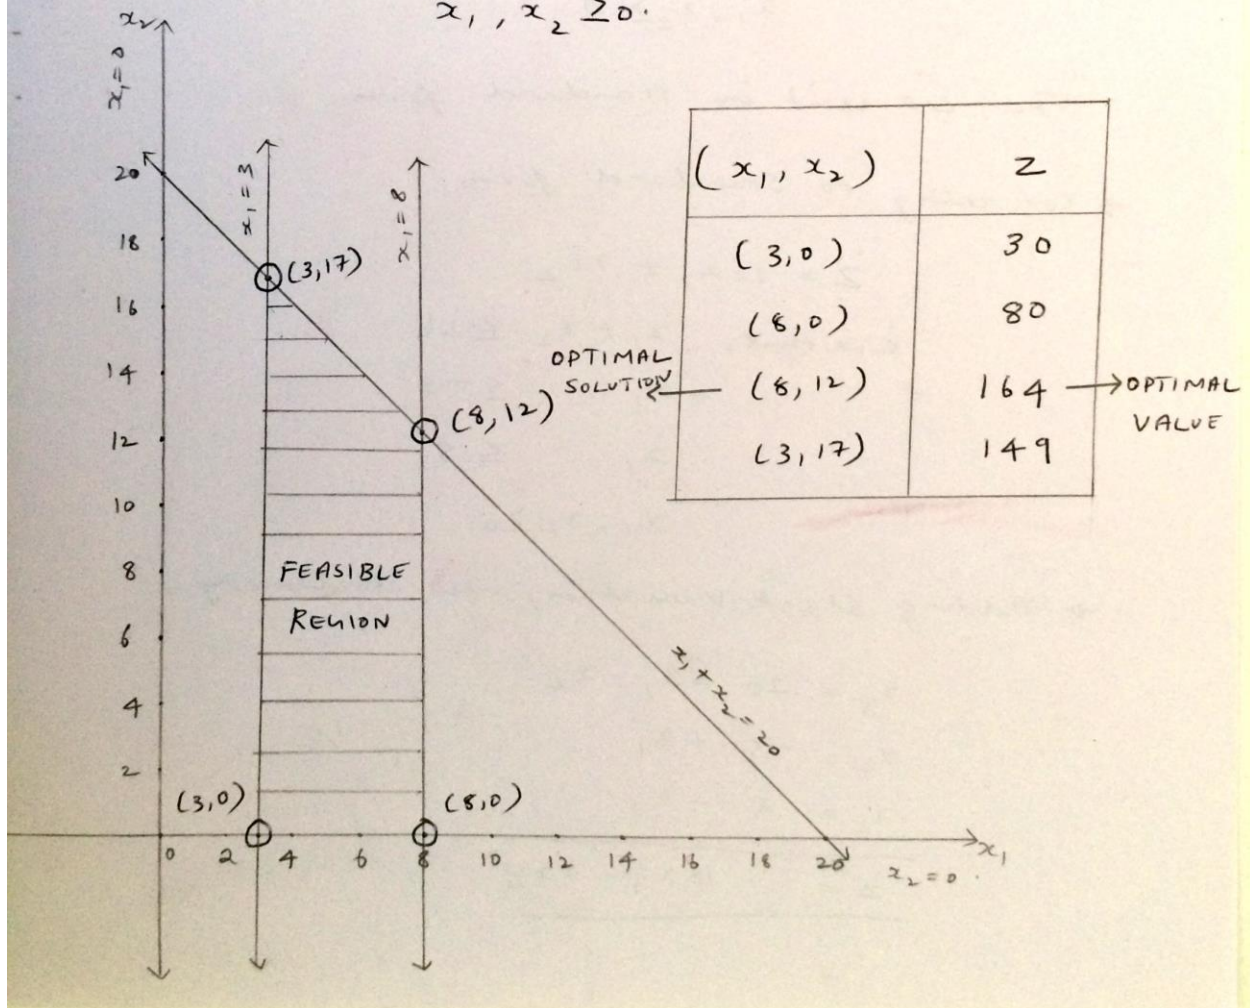 x₁, x₂ ≥ 0.
x₂
x₁ = 0
20
18
16
14
12
10
8
6
4
2
x₁ = 3
x₁ = 8
(3,17)
(8,12)
FEASIBLE
REGION
x₁ + x₂ = 20
(3,0)
(8,0)
0 2 4 6 8 10 12 14 16 18 20
x₁
x₂ = 0.
(x₁, x₂) Z
(3,0) 30
(8,0) 80
(8,12) 164
(3,17) 149
OPTIMAL
SOLUTION
OPTIMAL
VALUE